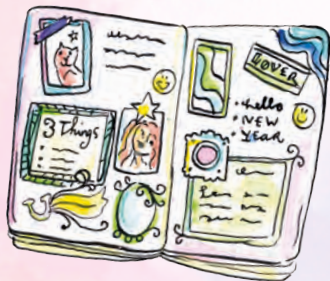 3 Things
LOVER
• hello
• NEW
• YEAR